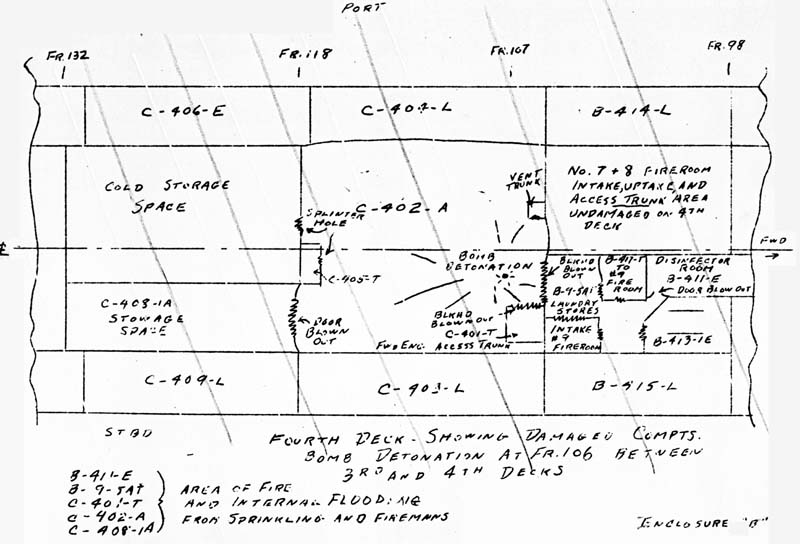 PORT
FR.132
FR.118
FR.107
FR.98
C-406-E
C-404-L
B-414-L
COLD STORAGE
SPACE
SPLINTER
HOLE
C-402-A
VENT
TRUNK
No. 7 + 8 FIREROOM
INTAKE, UPTAKE, AND
ACCESS TRUNK AREA
UNDAMAGED ON 4TH
DECK
FWD
C-405-T
BOMB
DETONATION
BLKHD
BLOWN
OUT
B-417-T
TO
#9
FIRE
ROOM
DISINFECTOR
ROOM
B-411-E
DOOR BLOWN OUT
C-408-1A
STOWAGE
SPACE
DOOR
BLOWN
OUT
BLKHD
BLOWN OUT
C-401-T
FWD ENG. ACCESS TRUNK
B-9-5A1
LAUNDRY
STORES
INTAKE
#9
FIREROOM
B-413-1E
C-409-L
C-403-L
B-415-L
STBD
FOURTH DECK - SHOWING DAMAGED COMPTS.
BOMB DETONATION AT FR.106 BETWEEN
3RD AND 4TH DECKS
B-411-E
B-9-5A1
C-401-T
C-402-A
C-408-1A
AREA OF FIRE
AND INTERNAL FLOODING
FROM SPRINKLING AND FIREMAINS
ENCLOSURE "B"